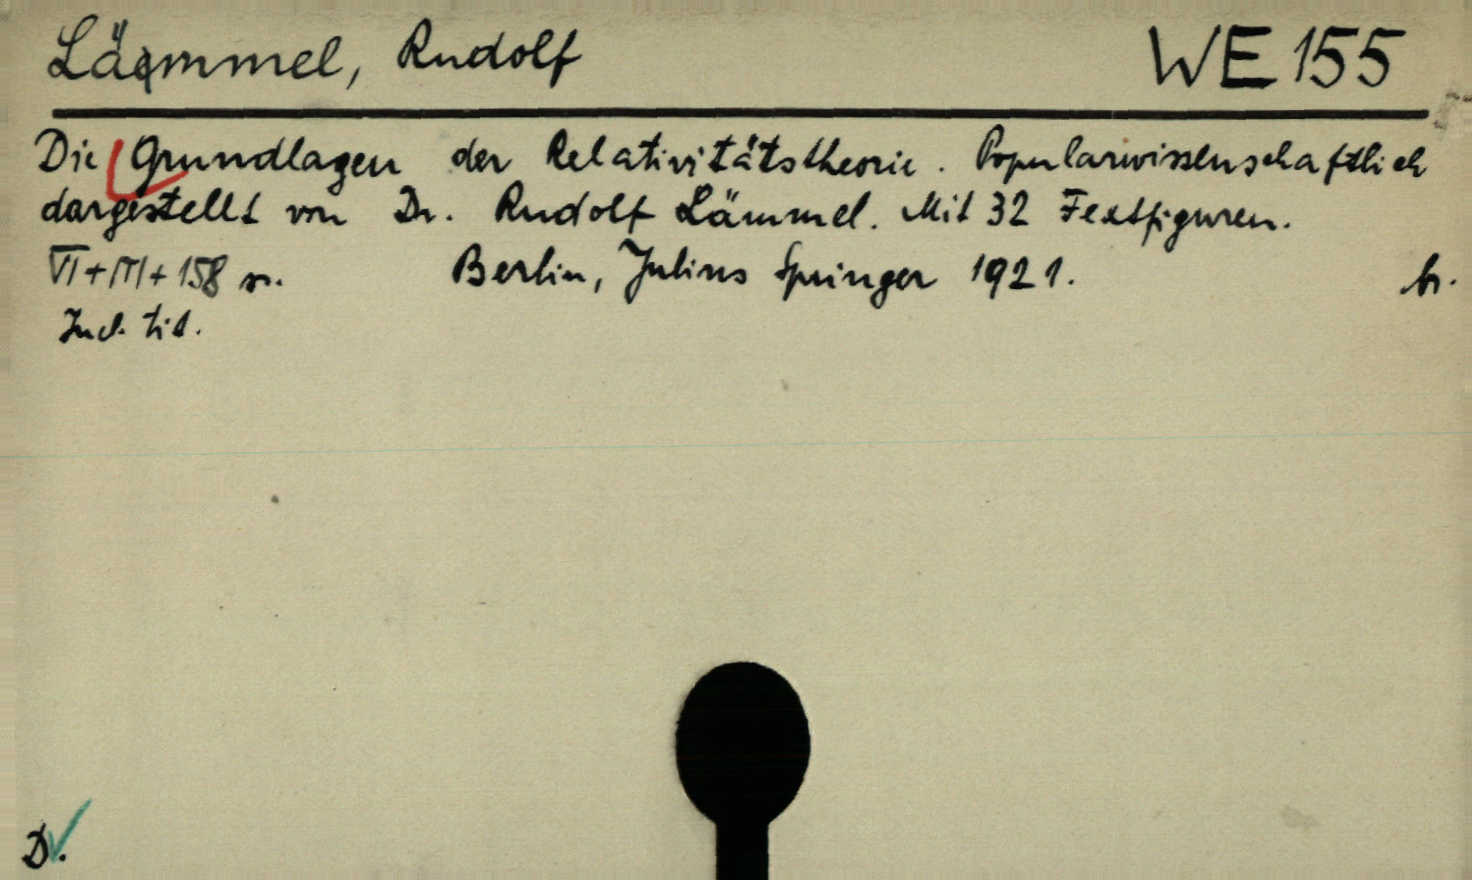 Läemmel, Rudolf WE 155
Die Grundlagen der Relativitätstheorie. Popularwissenschaftlich
dargestellt von Dr. Rudolf Lämmel. Mit 32 Textfiguren.
VI+III+158 s. Berlin, Julius Springer 1921. br.
Incl. tit.
D.